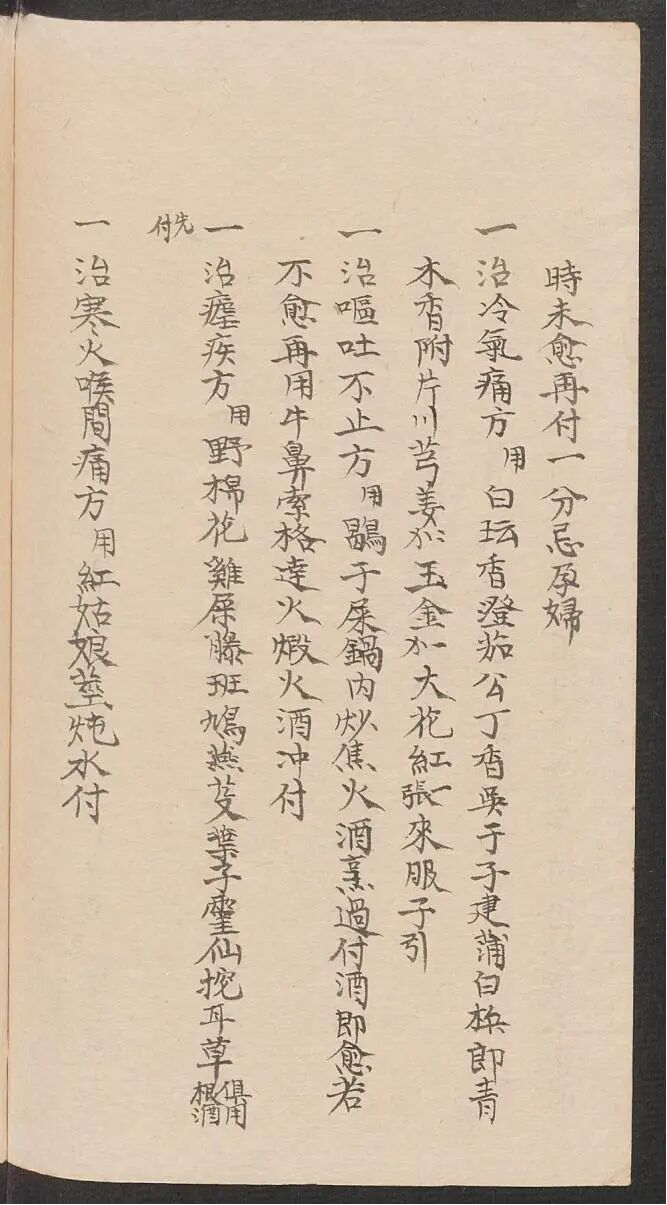 時未愈再付一分忌孕婦
一治冷氣痛方用白坛香澄茄公丁香吳于子建蒲白梹郎青
木香附片川芎姜炒玉金炒大花紅一張來服子引
一治嘔吐不止方用鷄子屎鍋内炒焦火酒烹過付酒即愈若
不愈再用牛鼻索格達火煅火酒冲付
一治瘽疾方用野棉花雞屎藤班鳩燕芰葉子塵仙挖耳草俱用根酒
先付
一治寒火喉間痛方用紅姑娘莖炖水付